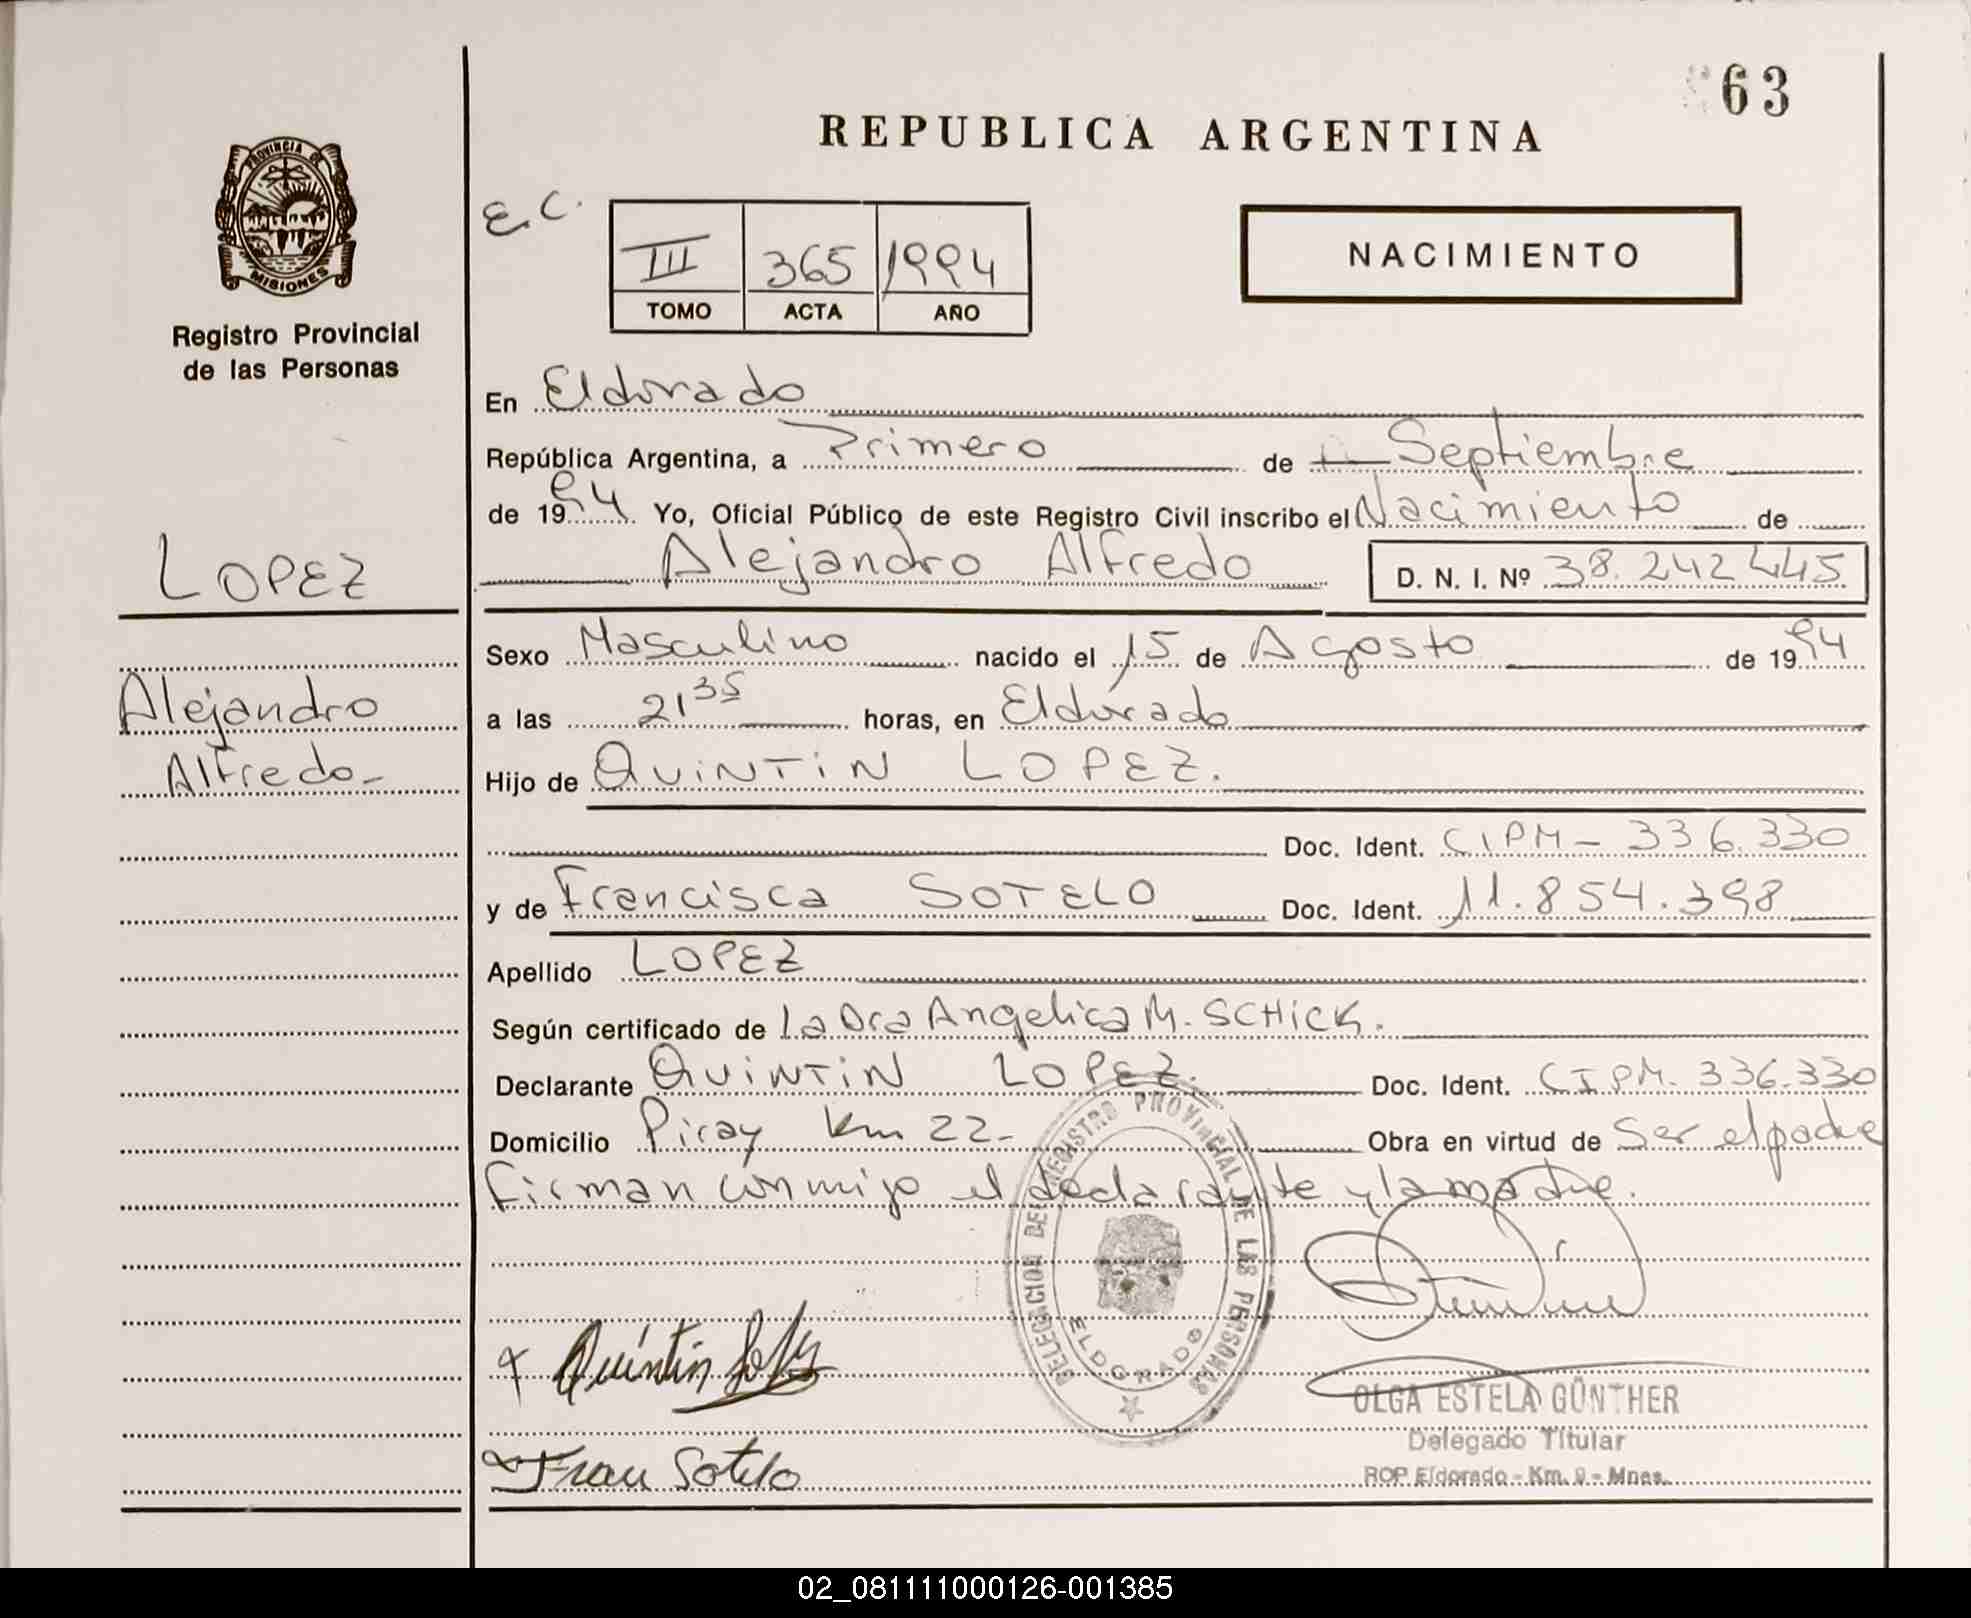 63
REPUBLICA ARGENTINA
PROVINCIA DE
MISIONES
Registro Provincial
de las Personas
E.C.
III 365 1994
TOMO ACTA AÑO
NACIMIENTO
En Eldorado
República Argentina, a Primero de Septiembre
de 1994 Yo, Oficial Público de este Registro Civil inscribo el Nacimiento de
Alejandro Alfredo D. N. I. Nº 38.242.445
LOPEZ
Alejandro
Alfredo-
Sexo Masculino nacido el 15 de Agosto de 1994
a las 21 35 horas, en Eldorado
Hijo de QUINTIN LOPEZ.
Doc. Ident. CIPM - 336.330
y de Francisca SOTELO Doc. Ident. 11.854.398
Apellido LOPEZ
Según certificado de La Dra Angelica M. SCHICK.
Declarante QUINTIN LOPEZ. Doc. Ident. CIPM. 336.330
Domicilio Piray Km 22- Obra en virtud de Ser el padre
firman conmigo el declarante y la madre.
DELEGACION DEL REGISTRO PROVINCIAL DE LAS PERSONAS
ELDORADO
Quíntin
Fran Sotelo
OLGA ESTELA GÜNTHER
Delegado Titular
RCP Eldorado - Km. 9 - Mnes.
02_081111000126-001385